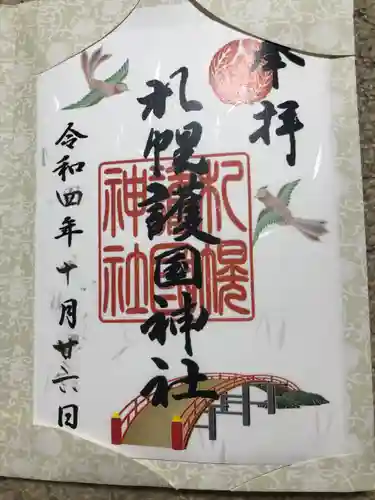 奉拝
札幌護国神社
札幌
護国
神社
令和四年十月廿六日